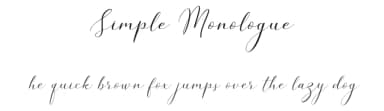 Simple Monologue
he quick brown fox jumps over the lazy dog